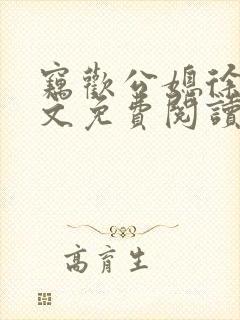 竊歡公媳徐
文免費閱讀
高育生